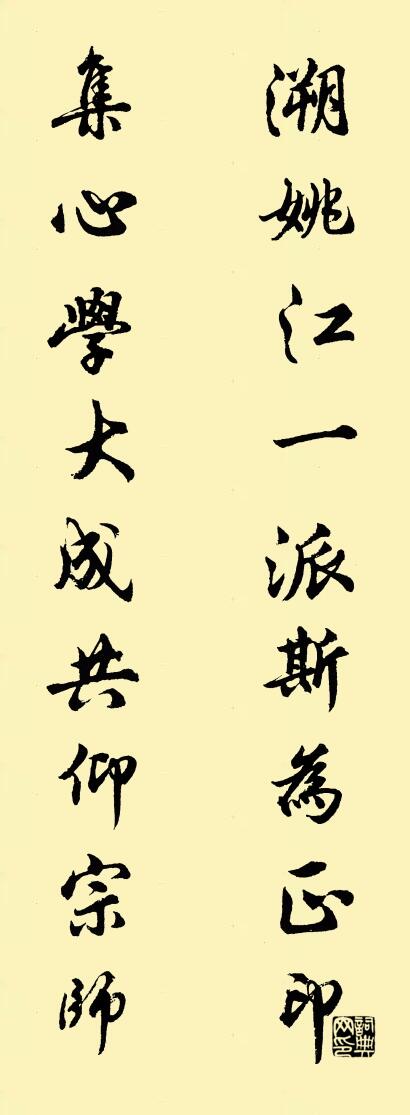 溯姚江一派斯為正印
集心學大成共仰宗師
詞典網印